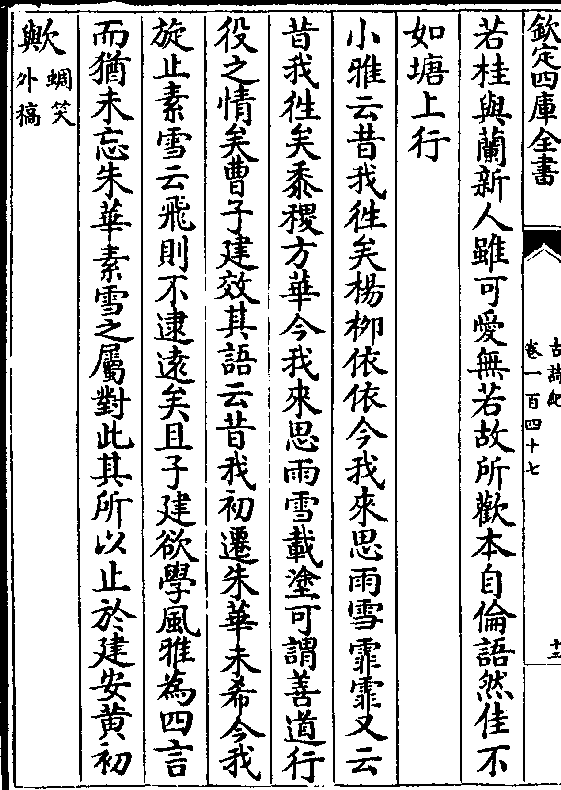 欽定四庫全書
古詩紀
卷一百四十七
十二
若桂與蘭新人雖可愛無若故所歡本自倫語然佳不
如塘上行
小雅云昔我徃矣楊栁依依今我來思雨雪霏霏又云
昔我徃矣黍稷方華今我來思雨雪載塗可謂善道行
役之情矣曹子建效其語云昔我初遷朱華未希今我
旋止素雪云飛則不逮遠矣且子建欲學風雅為四言
而猶未忘朱華素雪之屬對此其所以止於建安黄初
歟蜩笑
外稿